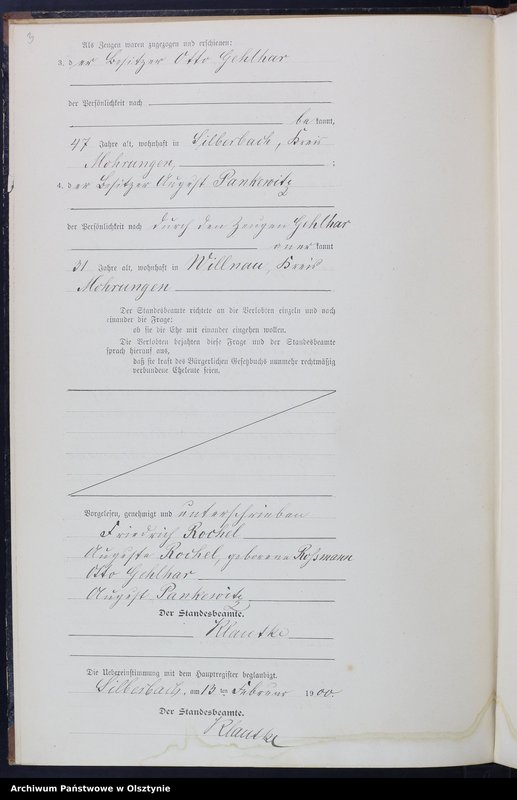 3
Als Zeugen waren zugezogen und erschienen:
3. der Besitzer Otto Gehlhar
der Persönlichkeit nach
be kannt,
47 Jahre alt, wohnhaft in Silberbach, Kreis
Mohrungen, ;
4. der Besitzer August Pankewitz
der Persönlichkeit nach durch den Zeugen Gehlhar
aner kannt
31 Jahre alt, wohnhaft in Willnau, Kreis
Mohrungen
Der Standesbeamte richtete an die Verlobten einzeln und nach
einander die Frage:
ob sie die Ehe mit einander eingehen wollen.
Die Verlobten bejahten diese Frage und der Standesbeamte
sprach hierauf aus,
daß sie kraft des Bürgerlichen Gesetzbuchs nunmehr rechtmäßig
verbundene Eheleute seien.
Vorgelesen, genehmigt und unterschrieben
Friedrich Rochel
Auguste Rochel, geborene Rossmann
Otto Gehlhar
August Pankewitz
Der Standesbeamte.
Klautke
Die Uebereinstimmung mit dem Hauptregister beglaubigt.
Silberbach, am 13 ten Februar 1900
Der Standesbeamte.
Klautke
Archiwum Państwowe w Olsztynie